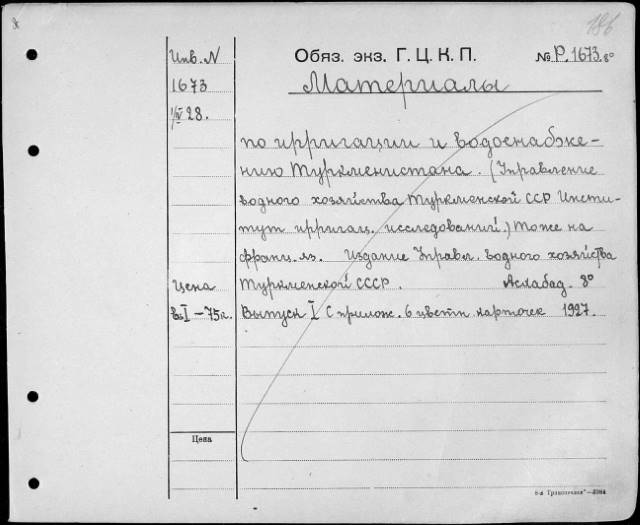 186
Инв. N
1673
1/IV 28.
Обяз. экз. Г. Ц. К. П.
№ Р. 1673 8°
Материалы
по ирригации и водоснабже-
нию Туркменистана. (Управление
водного хозяйства Туркменской ССР Инсти-
тут ирригац. исследований.) Тоже на
франц. яз. Издание Управл. водного хозяйства
Цена
Туркменской СССР. Асхабад. 8°
в. I – 75 к.
Выпуск I С прилож. 6 цветн. карточек 1927.
Цена